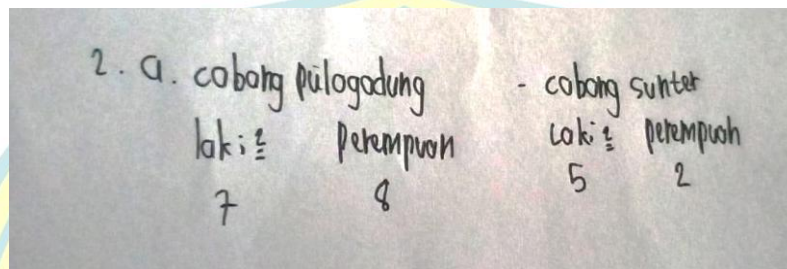 2. a. cobang pulogadung - cobang sunter
laki² perempuan laki² perempuan
7 8 5 2